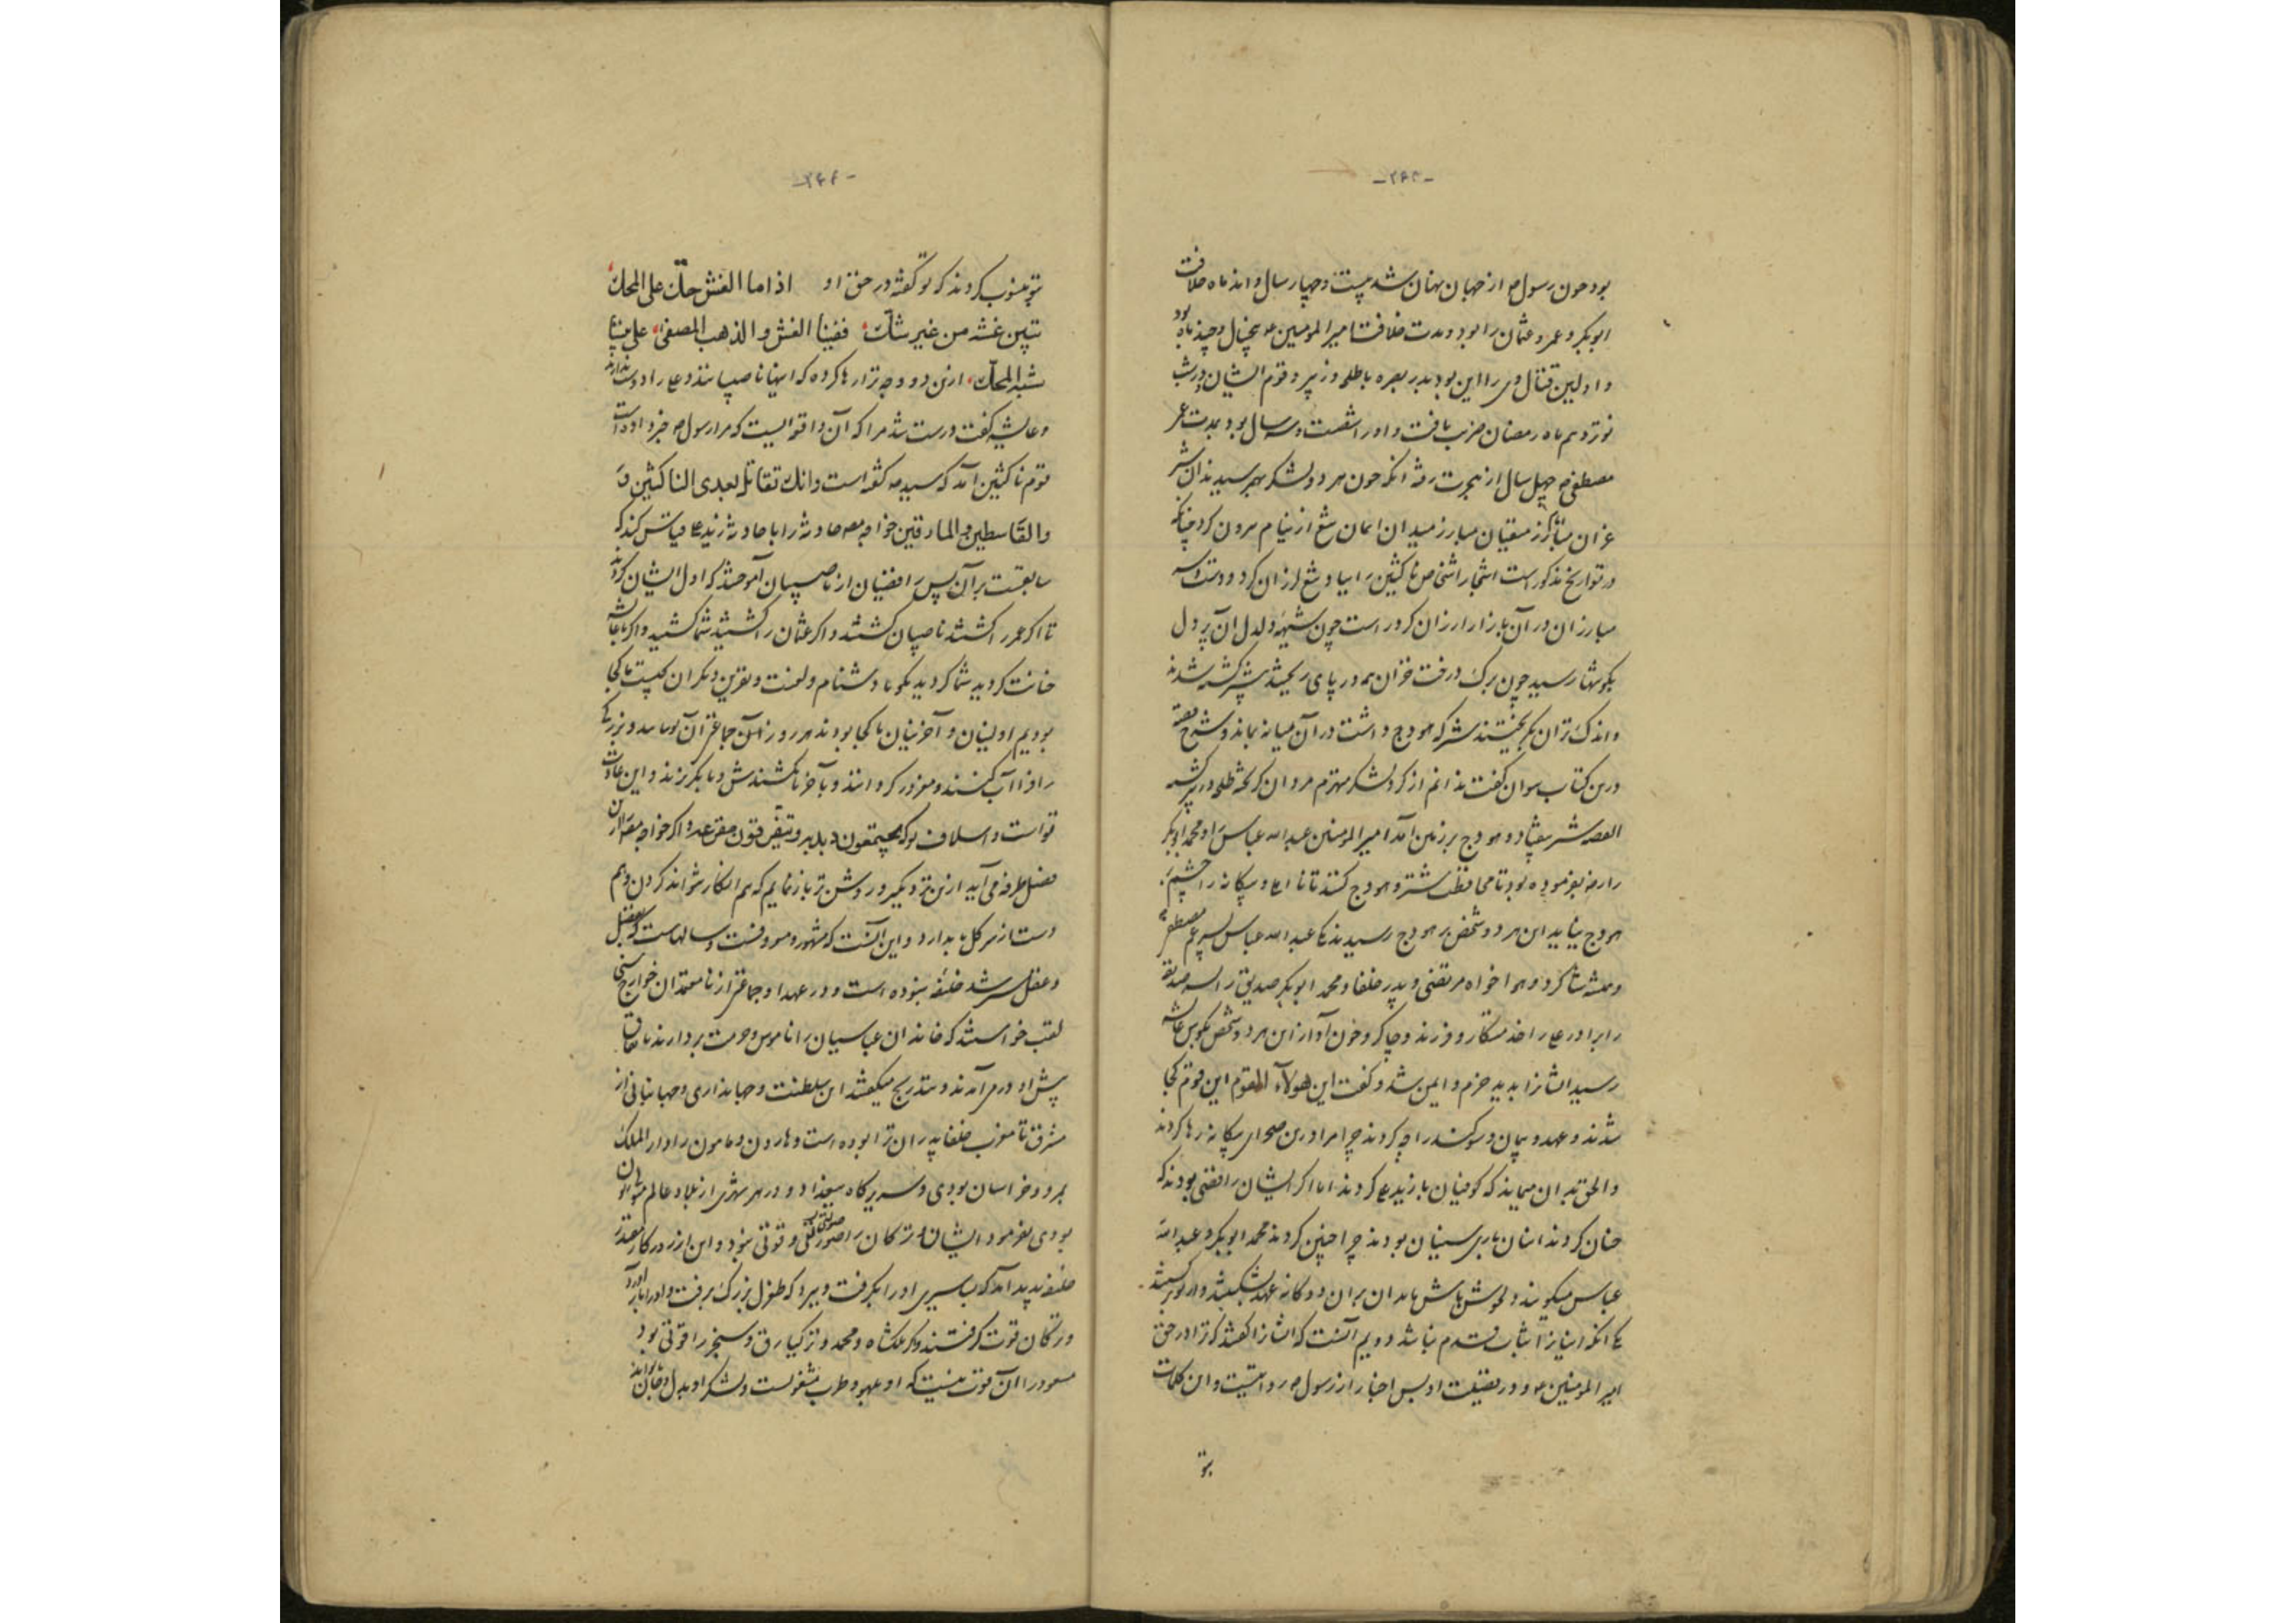 -۲۶۳-
بود چون رسول ص از جهان پنهان شد بیست و چهار سال و اند ماه خلافت
ابوبکر و عمر و عثمان را بود و مدت خلافت امیرالمومنین ع پنج سال و چند ماه بود
و اولین قتال وی را این بود بدر بصره با طلحه و زبیر و قوم ایشان و در شب
نوزدهم ماه رمضان ضربت یافت و او را شصت و سه سال بود بمدت عمر
مصطفی ص چهل سال از هجرت رفته آنکه چون هر دو لشکر بهم رسیدند آن شیر
غران مبارز میدان ایمان تیغ از نیام برون کرد چنانکه
در تواریخ مذکور است اشجار اشخاص ناکثین را بباد تیغ لرزان کرد و دست
مبارزان در آن بازار ارزان کرد راست چون شیهه دلدل آن پر دل
بگوشها رسید چون برگ درخت خزان همه در پای ریخته بیشتر کشته شدند
و اندک تر آن بگریختند شتر که هودج داشت در آن میانه بماند و شرح قصه
درین کتاب نتوان گفت لشکر منهزم مروان گریخته طلحه و زبیر کشته
القصه شتر بیفتاد و هودج بر زمین آمد امیرالمومنین عبدالله عباس را و محمد ابوبکر
را رض بفرموده بود تا محافظت شتر و هودج کنند تا بیگانه را چشم بر
هودج نیاید این هر دو شخص بر هودج رسیدند یکی عبدالله عباس پسر عم مصطفی
و همیشه شاگرد و هواخواه مرتضی و پدر خلفا و محمد ابوبکر صدیق را پسر صدیقه
را برادر علی را خدمتکار و فرزند و چاکر چون آواز این هر دو شخص بگوش عایشه
رسید ایشان را بدید خرم و ایمن شد و گفت این هولاء القوم این قوم کجا
شدند و عهد و پیمان و سوگند را چه کردند چرا مرا درین صحرای بیگانه رها کردند
والحق بدان میماند که کوفیان با زید علی کردند اما اگر ایشان رافضی بودند که
چنان کردند اینان باری سنیان بودند چرا چنین کردند محمد ابوبکر و عبدالله
عباس میگویند خوش باش مادران بران دوگانه عهد بشکستند
یکی آنکه اینان را ثبات قدم نباشد دویم آنست که ایشان را گفتند که ترا در حق
امیرالمومنین ع و در فضیلت او بس اخبار از رسول ص روایتست و این کلمات
بتو
-۲۶۴-
بتو منسوب کردند که تو گفته در حق او اذا ما الغش حك على المحك
تبین غشه من غير شك ففينا الغش والذهب المصفى علي بيننا
شبه المحك ازین دو وجه ترا رها کردند که اینها ناصبیانند و علی را دوست ندارند
و عایشه گفت درست شد مرا که آن واقعه ایست که مرا رسول ص خبر داده است
قوم ناکثین آمد که سید ص گفته است وانك تقاتل بعدي الناكثين و
والقاسطين والمارقين خواجه مصر حادثه را با حادثه زید علی قیاس کند که
سابقتست بر آن پس رافضیان از ناصبیان آموختند که اول ایشان کردند
تا اگر عمر را کشتند ناصبیان کشتند و اگر عثمان را کشتید شما کشتید و اگر با عایشه
خیانت کردید شما کردید بگو تا دشنام و لعنت و نفرین دیگران چیست ما کجا
بودیم اولینان و آخرینان ما کجا بودند هر روز از آن جماعتی آن و بزرگی
را فرا آب کنند و مغرور گردانند و بآخر ناکشند پیش و بگریزند و این عادت
تو است و اسلاف تو که یجتمعون بلا بر و یتفرقون مقرعة و اگر خواجه مصنف را از آن
فصل طرفه می آید ازین نزدیکتر و روشن تر باز نمایم که هم انکار نتواند کردن و هم
دست از سر کل بدارد و این آنست که مشهور و معروفست و سالهاست که بفضل
و عقل مسترشد خلیفه نبوده است و در عهد او جماعتی از نامعتمدان خوارج سنی
لقب خواستند که خاندان عباسیان را ناموس و حرمت بردارند باتفاق
پیش او در می آمدند و بتدریج میگفتند این سلطنت و جهانداری و جهانبانی از
مشرق تا مغرب خلفا پدران ترا بوده است و هارون و مامون را دارالملک
بمرو و خراسان بودی و سریرگاه ببغداد و در هر شهری از بلاد عالم
بودی بفرمود ایشان و ترکان را صولتی و قوتی نبود و این از روزگار مقتدر
خلیفه پدید آمد که بساسیری او را بگرفت و ببرد که طغرل بزرگ برفت و او را باز آورد
و ترکان قوت گرفتند و ملکشاه و محمد و برکیارق و سنجر را قوتی بود
مسعود را آن قوت نیست که او بلهو و طرب مشغولست و لشکر او بدل و جان